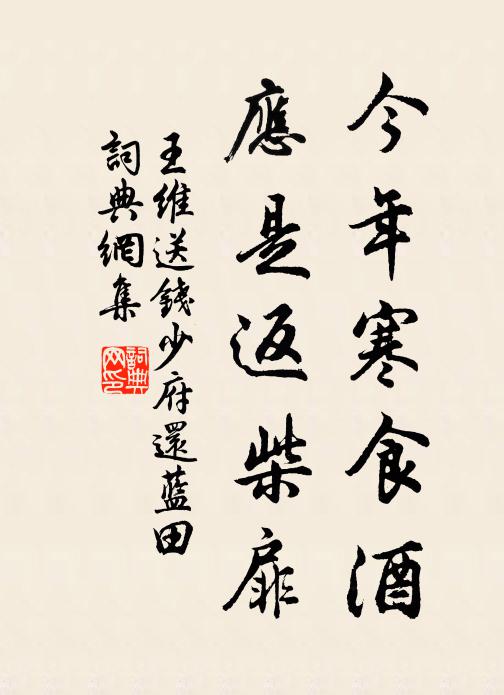 今年寒食酒
應是返柴扉
王維送錢少府還藍田
詞典網集
詞典
网印